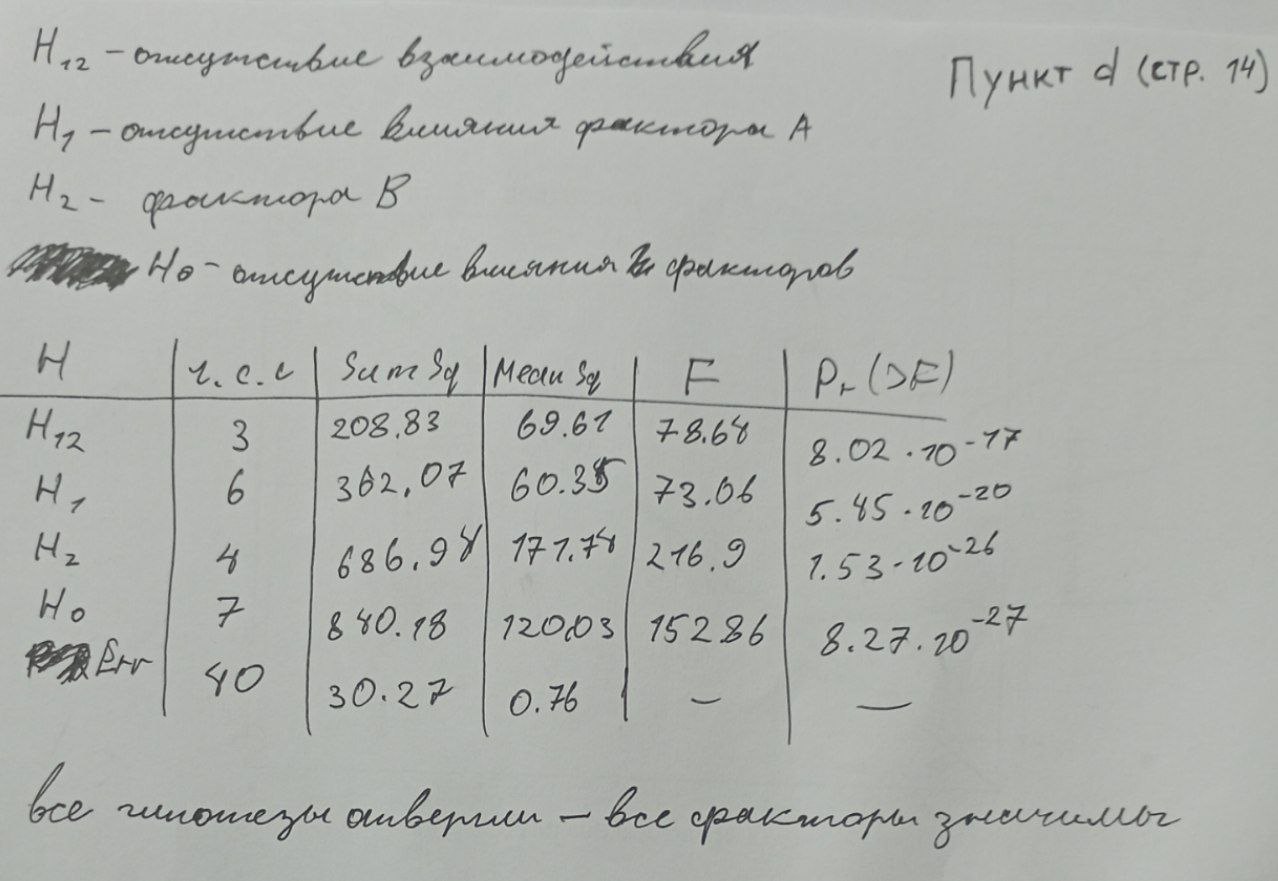 H₁₂ – отсутствие взаимодействия
Пункт d (стр. 14)
H₁ – отсутствие влияния фактора А
H₂ – фактора В
H₀ – отсутствие влияния 2х факторов
H | ч.с.с | Sum Sq | Mean Sq | F | Pr (>F)
H₁₂ | 3 | 208.83 | 69.61 | 78.64 | 8.02 · 10⁻¹⁷
H₁ | 6 | 362.07 | 60.35 | 73.06 | 5.45 · 10⁻²⁰
H₂ | 4 | 686.94 | 171.74 | 216.9 | 1.53 · 10⁻²⁶
H₀ | 7 | 840.18 | 120.03 | 152 86 | 8.27 · 10⁻²⁷
Err | 40 | 30.27 | 0.76 | – | –
все гипотезы отвергли – все факторы значимы